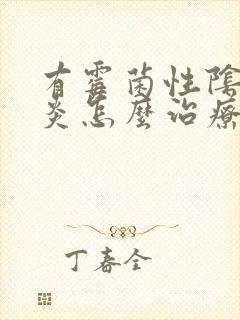 有霉菌性陰
炎怎麼治療
丁春全